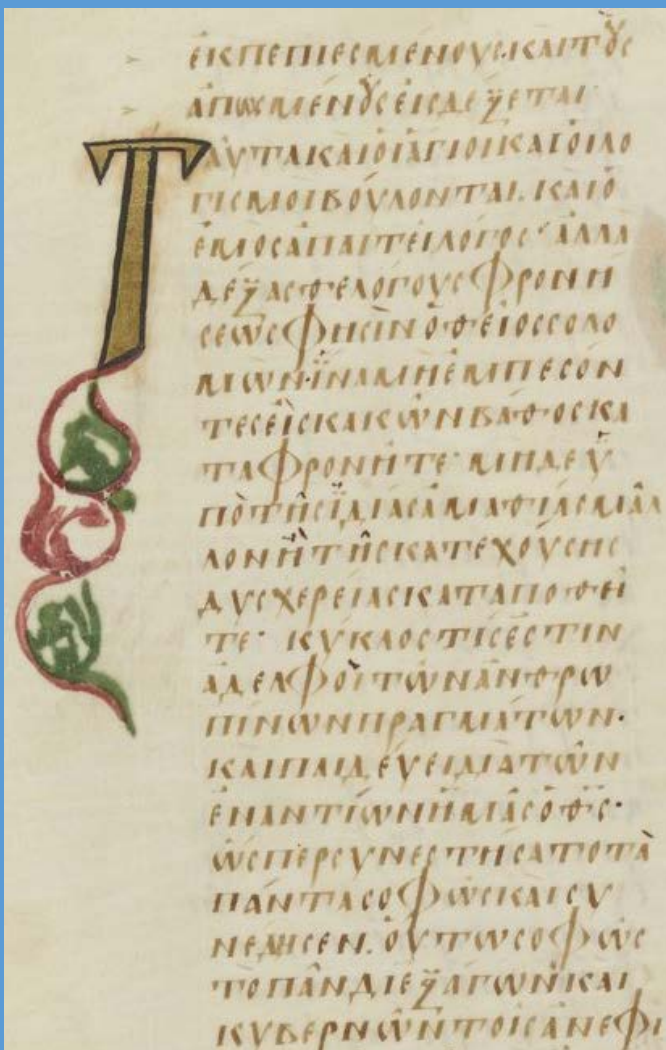 ἐκπεπιεσμένους. καὶ τοὺς
ἀπωσμένους εἰσδέξεται·
Ταῦτα καὶ οἱ ἅγιοι καὶ οἱ λο
γισμοὶ βούλονται. καὶ ὁ
ἐμὸς ἀπαιτεῖ λόγος· ἀλλὰ
δέξασθε λόγους φρονή
σεως φησὶν ὁ θεῖος σολο
μών· ἵνα μὴ ἐμπεσόν
τες εἰς κακῶν βάθος κα
ταφρονῆτε· μηδὲ ὑ
πὸ τῆς ἰδίας ἀμαθίας μᾶλ
λον ἢ τῆς κατεχούσης
δυσχερείας καταποθεῖ
τε· κύκλος τίς ἐστιν
ἀδελφοὶ τῶν ἀνθρω
πίνων πραγμάτων·
καὶ παιδεύει διὰ τῶν
ἐναντίων ἡμᾶς ὁ θς·
ὥσπερ συνεστήσατο τὰ
πάντα σοφῶς καὶ συ
νέδησεν. οὕτω σοφῶς
τὸ πᾶν διεξάγων καὶ
κυβερνῶν τοῖς ἀνεφι